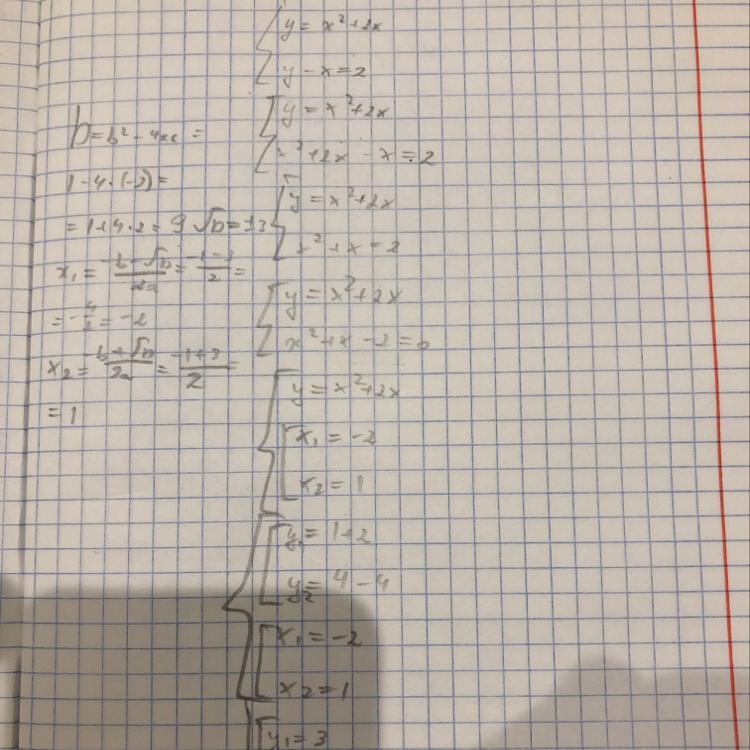 D = b² - 4ac =
1 - 4 · (-2) =
= 1 + 4 · 2 = 9 √D = ±3
x₁ = (-b - √D)/2a = (-1 - 3)/2 =
= -4/2 = -2
x₂ = (-b + √D)/2a = (-1 + 3)/2 =
= 1
y = x² + 2x
y - x = 2
y = x² + 2x
x² + 2x - x = 2
y = x² + 2x
x² + x = 2
y = x² + 2x
x² + x - 2 = 0
y = x² + 2x
x₁ = -2
x₂ = 1
y₁ = 1 + 2
y₂ = 4 - 4
x₁ = -2
x₂ = 1
y₁ = 3